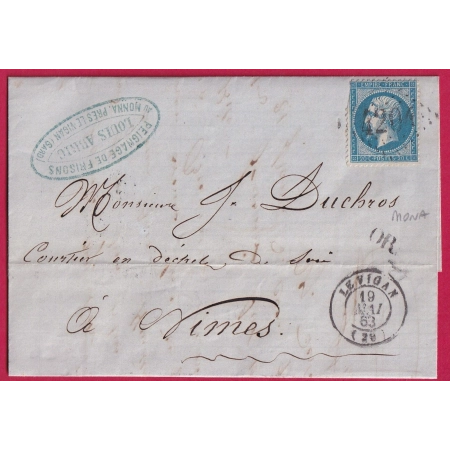 PEIGNAGE DE FRISONS
LOUIS
DU MONNA, PRÈS LE VIGAN (GARD)
EMPIRE FRANC
Monsieur J. Duchros
MONA
Courtier en déchets de Soie
OR
LE VIGAN
19
MAI
63
(29)
à Nimes.